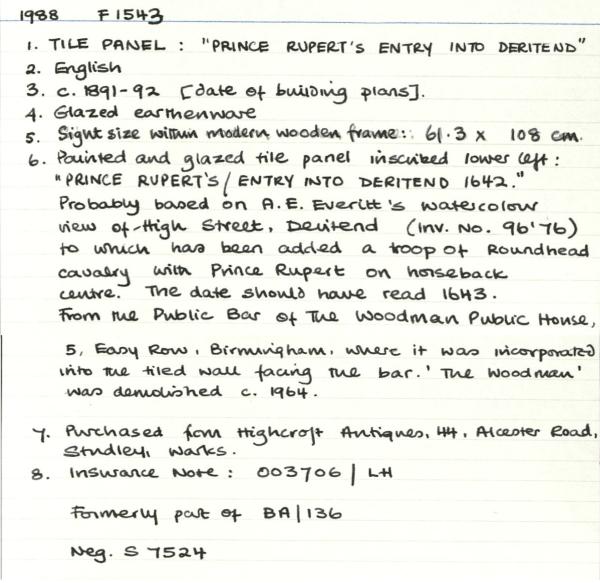 1988 F1543
1. TILE PANEL : "PRINCE RUPERT'S ENTRY INTO DERITEND"
2. English
3. c. 1891-92 [date of building plans].
4. Glazed earthenware
5. Sight size within modern wooden frame: 61.3 x 108 cm.
6. Painted and glazed tile panel inscribed lower left :
"PRINCE RUPERT'S / ENTRY INTO DERITEND 1642."
Probably based on A.E. Everitt's watercolour
view of High Street, Deritend (Inv. No. 96'76)
to which has been added a troop of Roundhead
cavalry with Prince Rupert on horseback
centre. The date should have read 1643.
From the Public Bar of The Woodman Public House,
5, Easy Row, Birmingham, where it was incorporated
into the tiled wall facing the bar. 'The Woodman'
was demolished c. 1964.
7. Purchased from Highcroft Antiques, 44, Alcester Road,
Studley, Warks.
8. Insurance Note : 003706 / LH
Formerly part of BA/136
Neg. S 7524